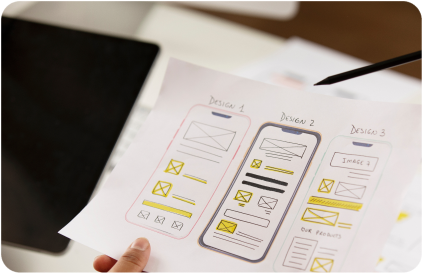 DESIGN 1
DESIGN 2
DESIGN 3
IMAGE 1
OUR PROJECTS